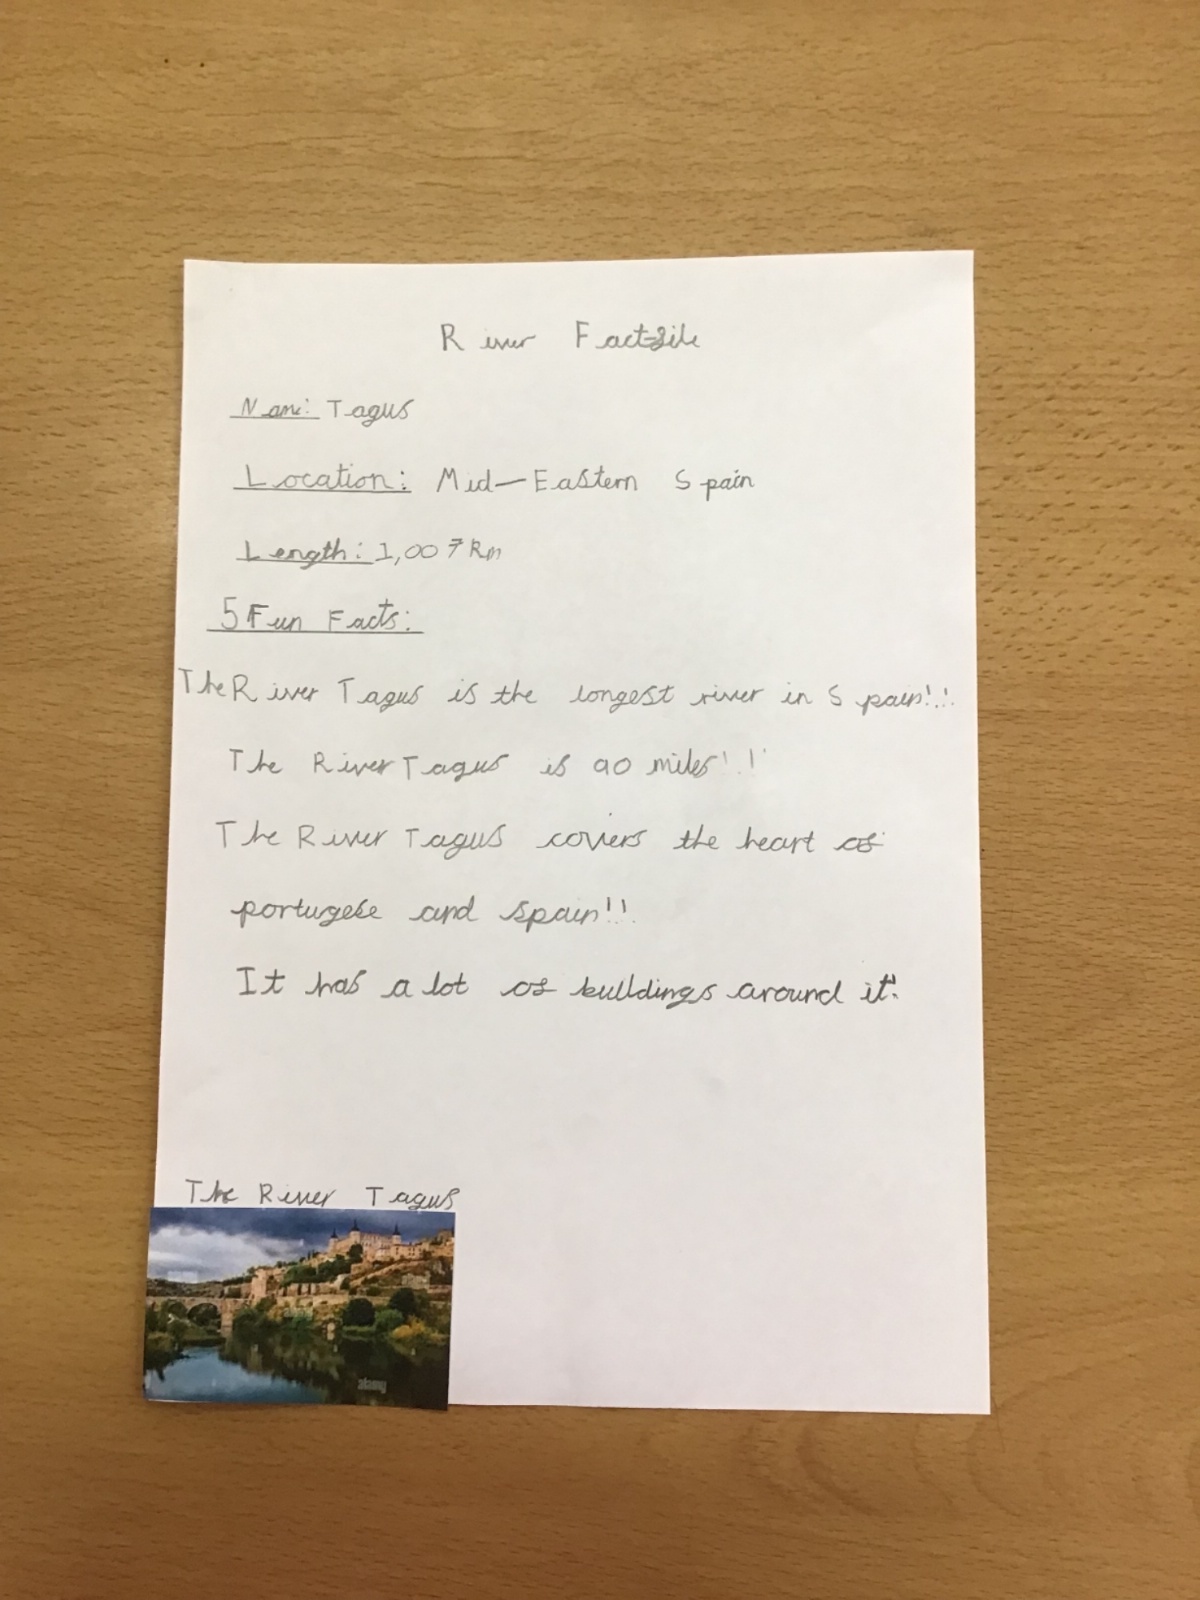 River Factfile
Name: Tagus
Location: Mid-Eastern Spain
Length: 1,007 Km
5 Fun Facts:
The River Tagus is the longest river in Spain!!!
The River Tagus is 90 miles!!!
The River Tagus covers the heart of
portugese and Spain!!!
It has a lot of buildings around it!!
The River Tagus
alamy